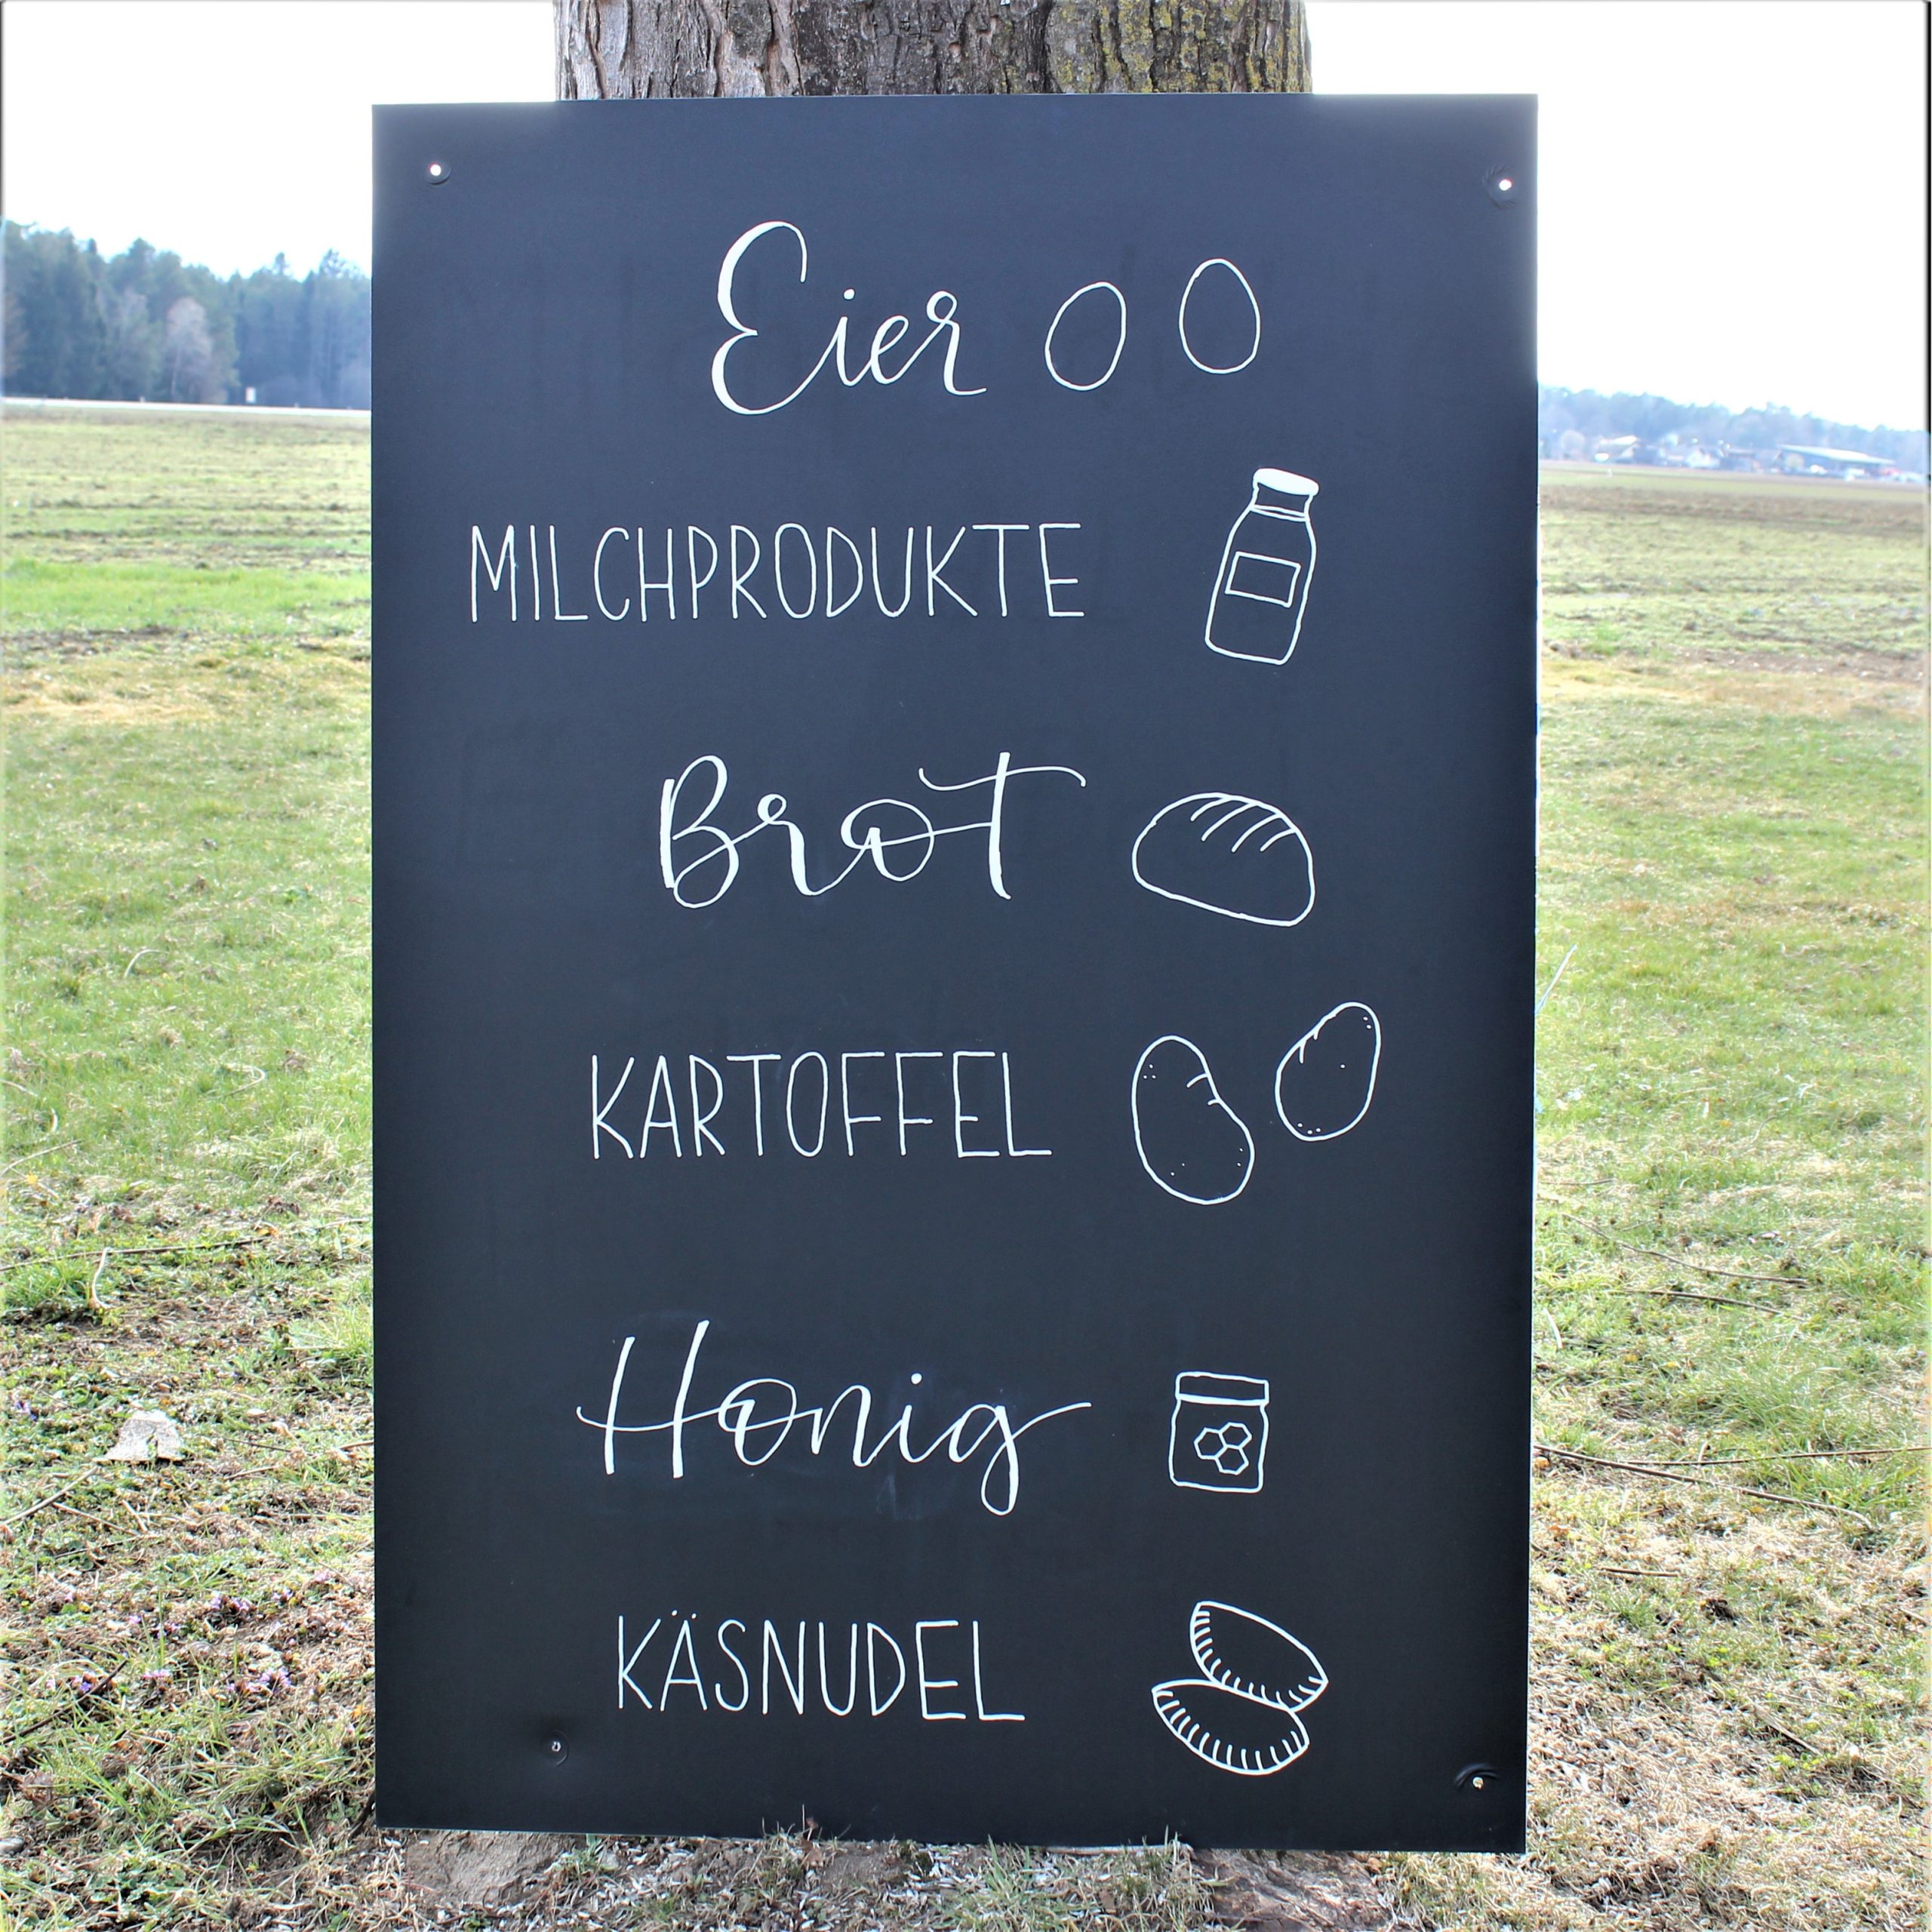 Eier
MILCHPRODUKTE
Brot
KARTOFFEL
Honig
KÄSNUDEL